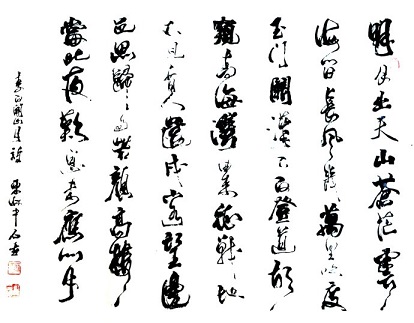 明月出天山蒼茫雲
海間長風幾萬里吹度
玉門關漢下白登道胡
窺青海灣由來征戰地
不見有人還戍客望邊
邑思歸多苦顏高樓
當此夜歎息未應閒
李白關山月詩